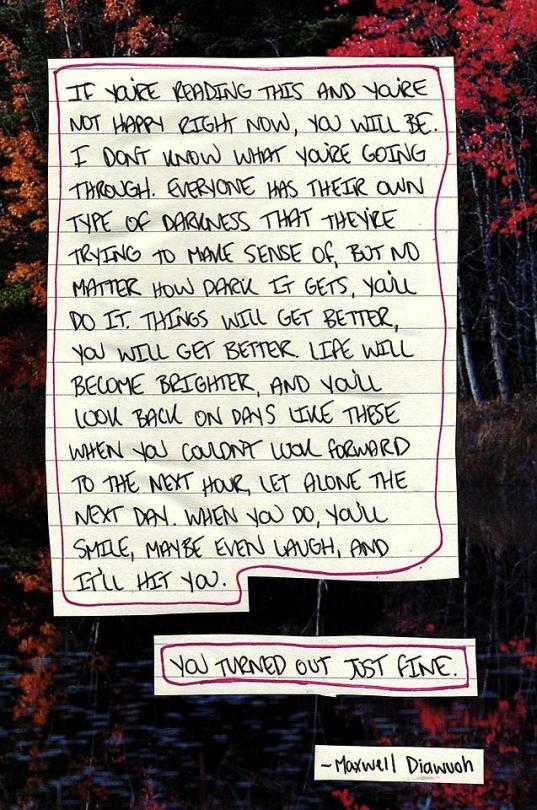 IF YOU'RE READING THIS AND YOU'RE
NOT HAPPY RIGHT NOW, YOU WILL BE.
I DON'T KNOW WHAT YOU'RE GOING
THROUGH. EVERYONE HAS THEIR OWN
TYPE OF DARKNESS THAT THEY'RE
TRYING TO MAKE SENSE OF, BUT NO
MATTER HOW DARK IT GETS, YOU'LL
DO IT. THINGS WILL GET BETTER,
YOU WILL GET BETTER. LIFE WILL
BECOME BRIGHTER, AND YOU'LL
LOOK BACK ON DAYS LIKE THESE
WHEN YOU COULDN'T LOOK FORWARD
TO THE NEXT HOUR, LET ALONE THE
NEXT DAY. WHEN YOU DO, YOU'LL
SMILE, MAYBE EVEN LAUGH, AND
IT'LL HIT YOU.
YOU TURNED OUT JUST FINE.
~Maxwell Diawuoh